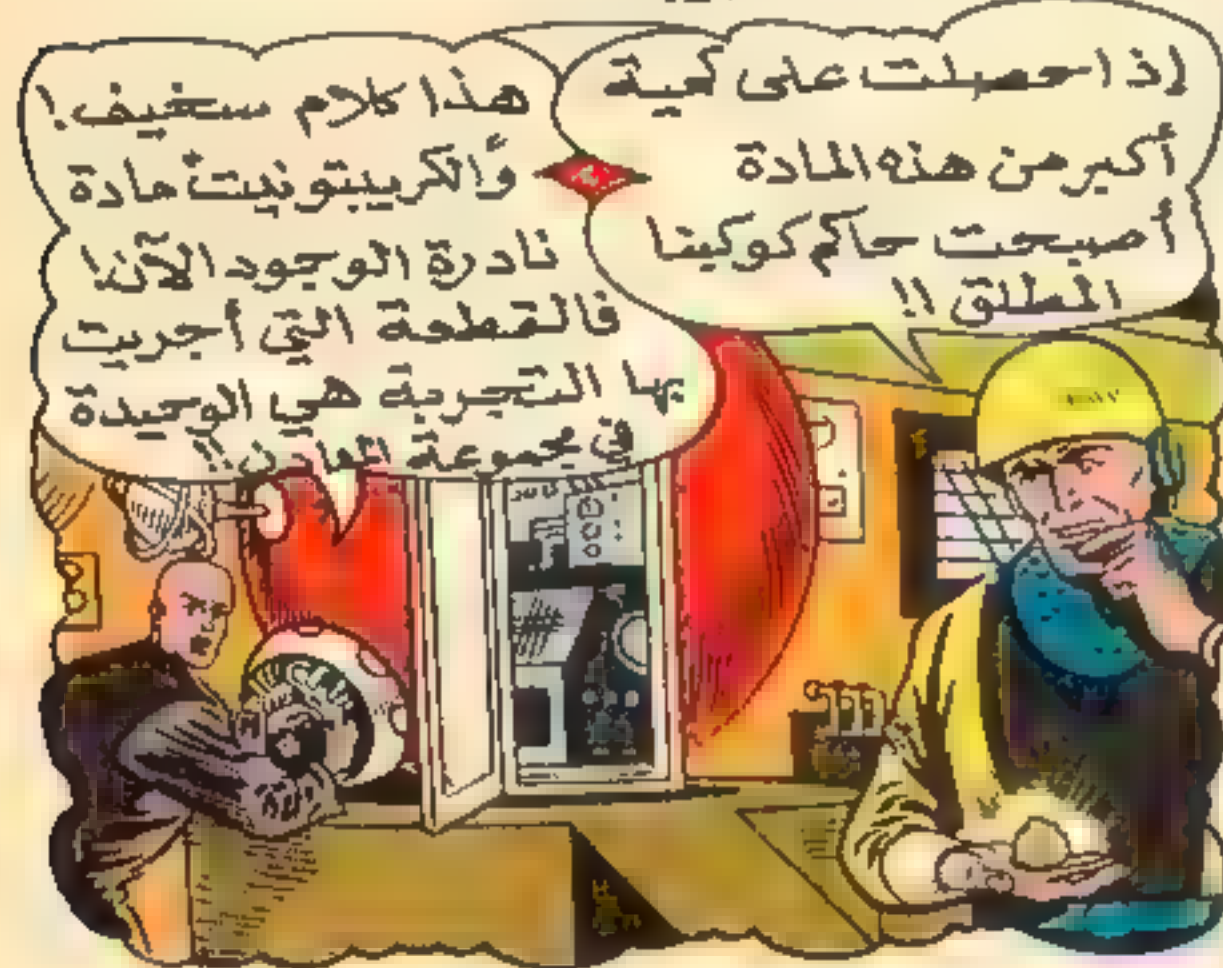 إذا حصلت على كمية
أكبر من هذه المادة
أصبحت حاكم كوكبنا
المطلق !!
هذا كلام سخيف !
والكريبتونيت مادة
نادرة الوجود الآن !
فالقطعة التي أجريت
بها التجربة هي الوحيدة
في مجموعة المعادن !!